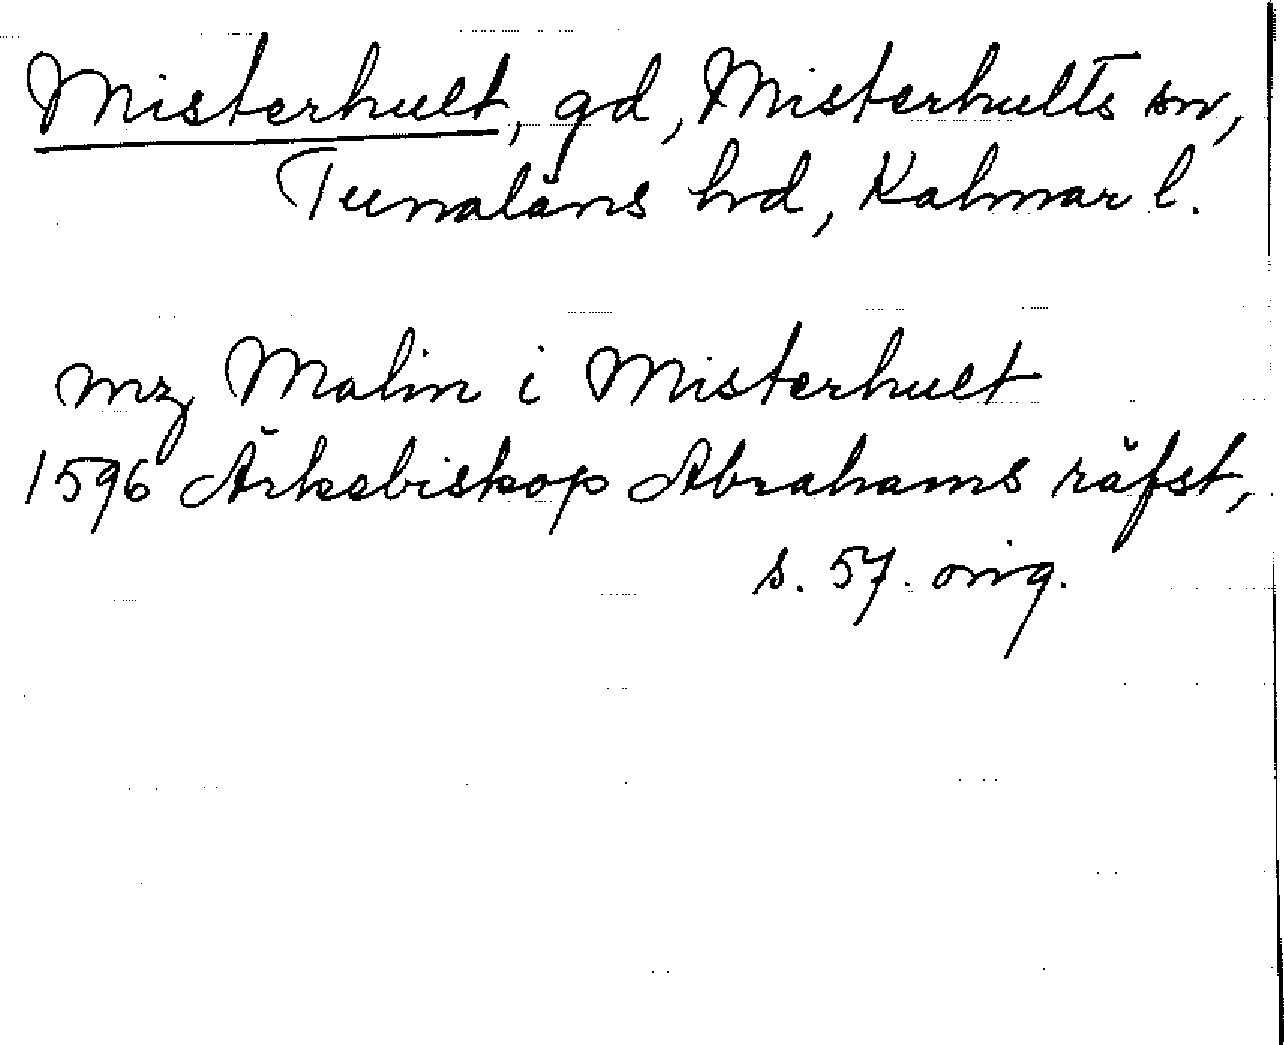 Misterhult, gd, Misterhults sn,
Tunaläns hd, Kalmar l.
mz Malin i Misterhult
1596 Ärkebiskop Abrahams räfst,
s. 57. orig.